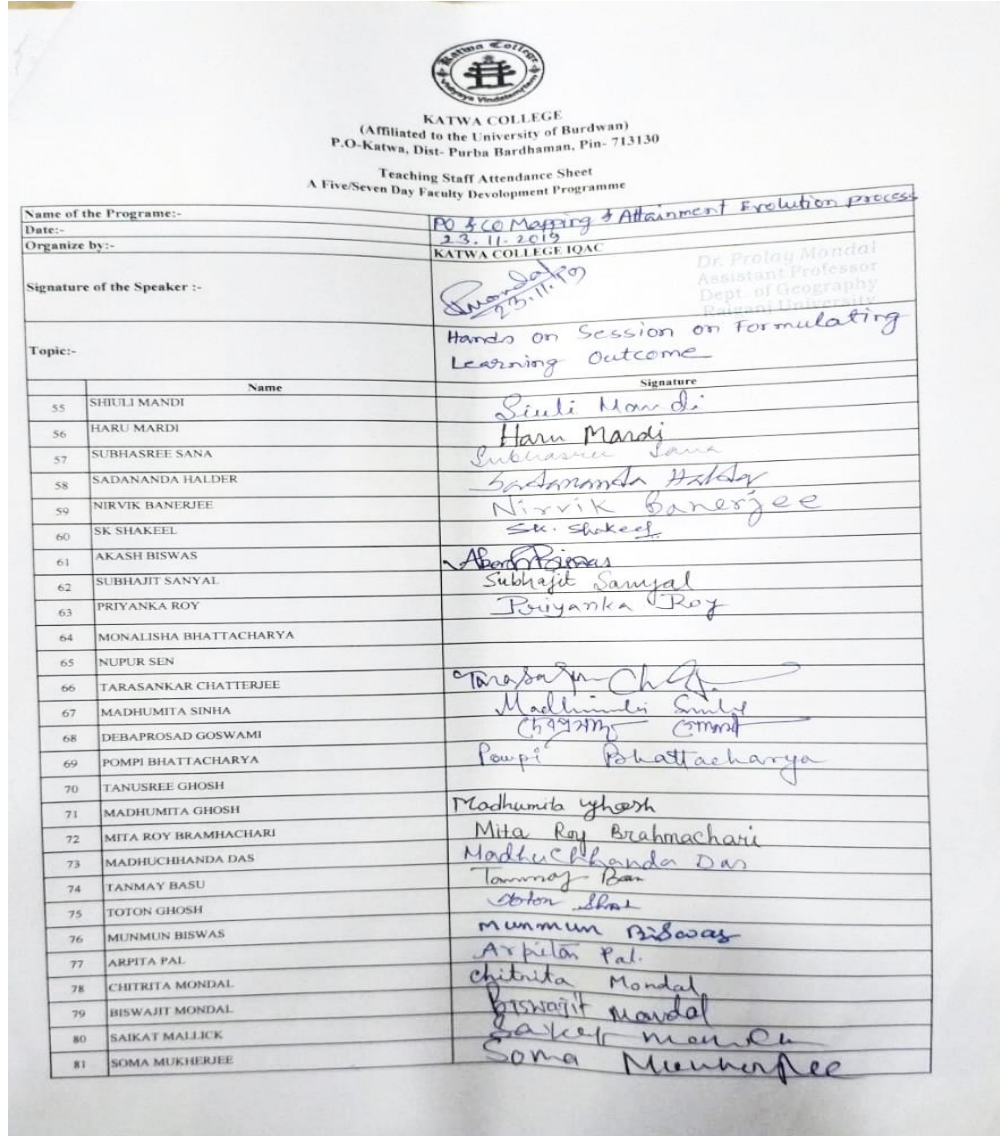 Katwa College
Vidyaya Vindatemritam
KATWA COLLEGE
(Affiliated to the University of Burdwan)
P.O-Katwa, Dist- Purba Bardhaman, Pin- 713130
Teaching Staff Attendance Sheet
A Five/Seven Day Faculty Devolopment Programme
Name of the Programe:- PO & CO Mapping & Attainment Evolution process
Date:- 23.11.2019
Organize by:- KATWA COLLEGE IQAC
Signature of the Speaker :- Pmondal 23.11.19
Dr. Prolay Mondal
Assistant Professor
Dept. of Geography
Raiganj University
Topic:- Hands on Session on Formulating
Learning Outcome
Name Signature
55 SHIULI MANDI Siuli Mandi
56 HARU MARDI Haru Mardi
57 SUBHASREE SANA Subhasree Sana
58 SADANANDA HALDER Sadananda Halder
59 NIRVIK BANERJEE Nirvik Banerjee
60 SK SHAKEEL Sk. Shakeel
61 AKASH BISWAS Akash Biswas
62 SUBHAJIT SANYAL Subhajit Sanyal
63 PRIYANKA ROY Priyanka Roy
64 MONALISHA BHATTACHARYA
65 NUPUR SEN
66 TARASANKAR CHATTERJEE
67 MADHUMITA SINHA Madhumita Sinha
68 DEBAPROSAD GOSWAMI
69 POMPI BHATTACHARYA Pompi Bhattacharya
70 TANUSREE GHOSH
71 MADHUMITA GHOSH Madhumita Ghosh
72 MITA ROY BRAMHACHARI Mita Roy Brahmachari
73 MADHUCHHANDA DAS Madhuchhanda Das
74 TANMAY BASU Tanmay Basu
75 TOTON GHOSH Toton Ghosh
76 MUNMUN BISWAS Munmun Biswas
77 ARPITA PAL Arpita Pal.
78 CHITRITA MONDAL Chitrita Mondal
79 BISWAJIT MONDAL Biswajit Mondal
80 SAIKAT MALLICK Saikat Mallick
81 SOMA MUKHERJEE Soma Mukherjee